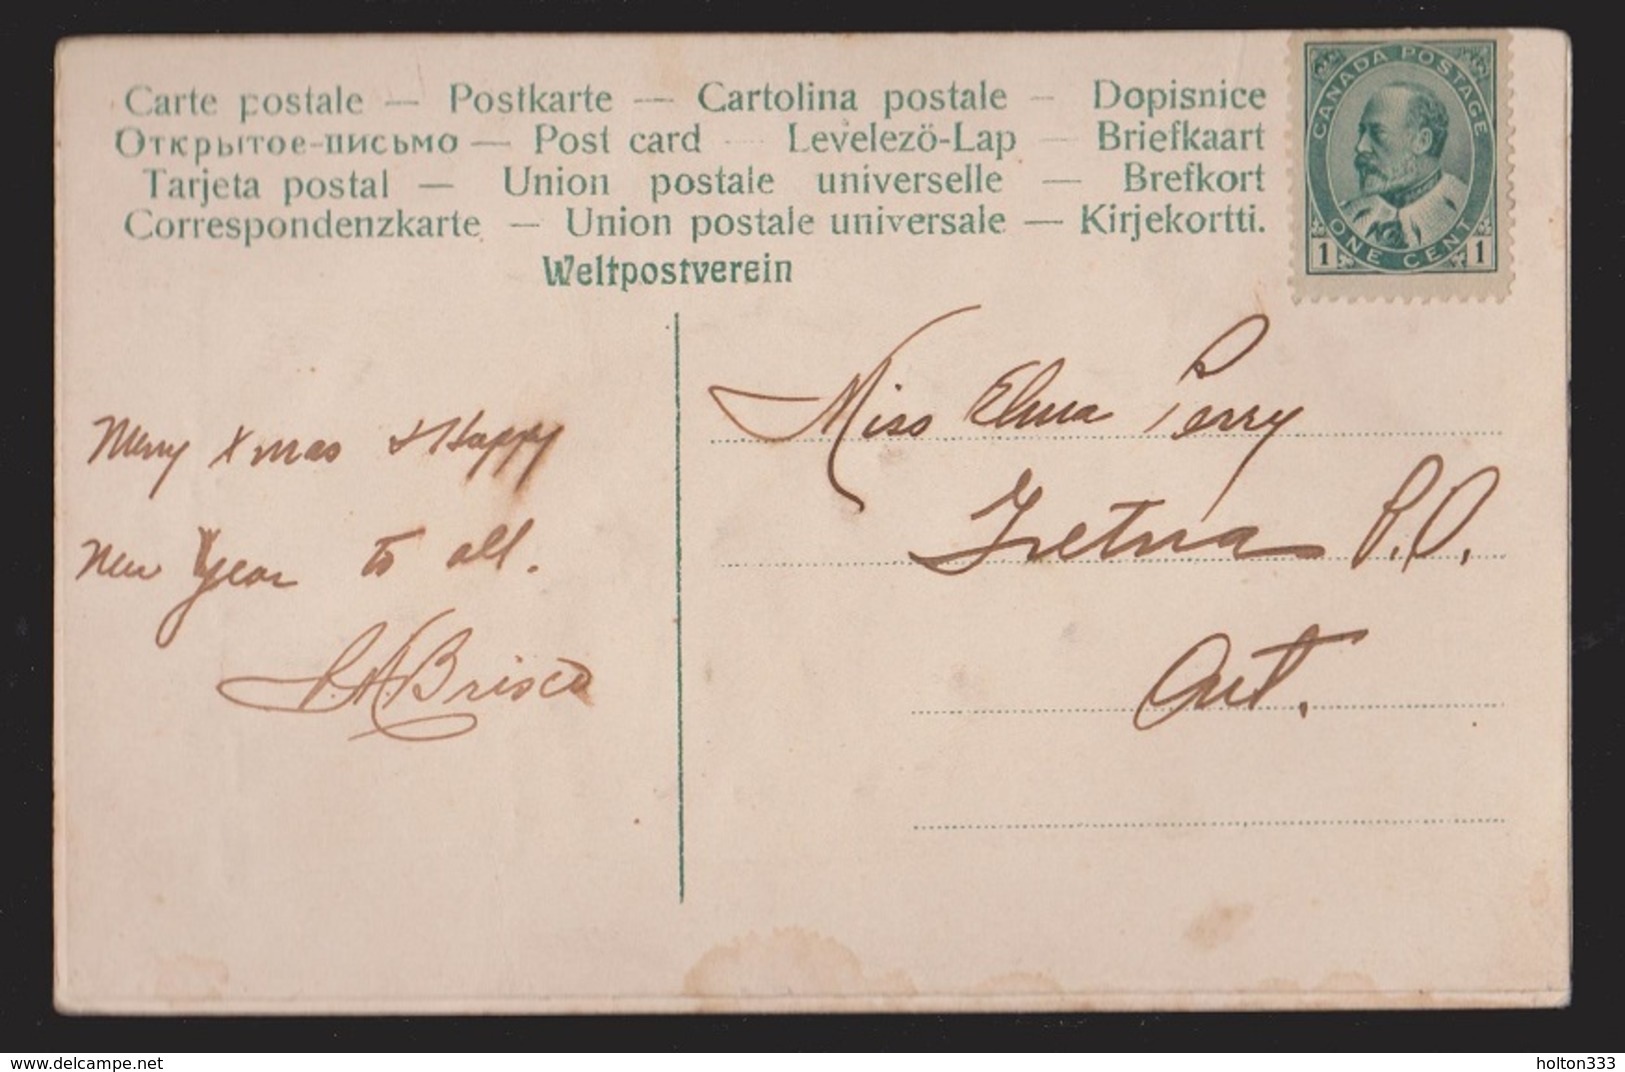 Carte postale — Postkarte — Cartolina postale — Dopisnice
Открытое-письмо — Post card — Levelező-Lap — Briefkaart
Tarjeta postal — Union postale universelle — Brefkort
Correspondenzkarte — Union postale universale — Kirjekortti.
Weltpostverein
CANADA POSTAGE
ONE CENT
1 1
Merry Xmas & Happy
New Year to all.
Brisco
Miss Elma Perry
Zretna P.O.
Ont.
www.delcampe.net
holton333